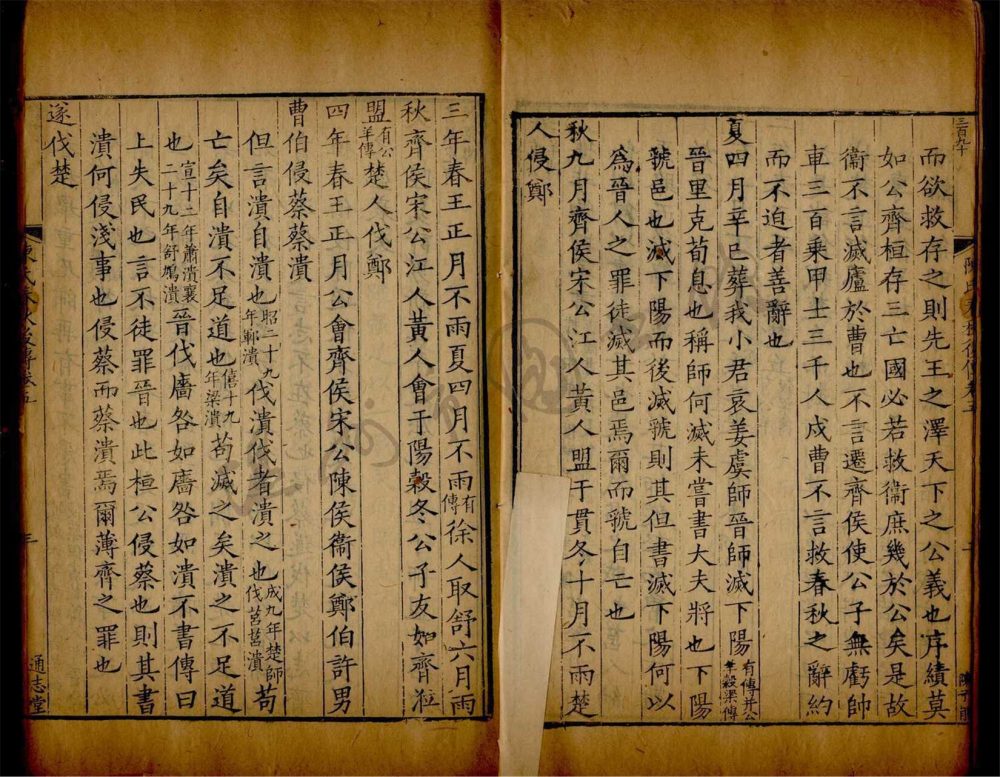 三百九十
而欲救存之則先王之澤天下之公義也序績莫
如公齊桓存三亡國必若救衞庶幾於公矣是故
衞不言滅廬於曹也不言遷齊侯使公子無虧帥
車三百乘甲士三千人戍曹不言救春秋之辭約
而不迫者善辭也
夏四月辛巳葬我小君哀姜虞師晉師滅下陽有傳并公羊穀梁傳
晉里克荀息也稱師何滅未嘗書大夫將也下陽
虢邑也滅下陽而後滅虢則其但書滅下陽何以
爲晉人之罪徒滅其邑焉爾而虢自亡也
秋九月齊侯宋公江人黃人盟于貫冬十月不雨楚
人侵鄭
三年春王正月不雨夏四月不雨有傳徐人取舒六月雨
秋齊侯宋公江人黃人會于陽穀冬公子友如齊涖
盟有公羊傳楚人伐鄭
四年春王正月公會齊侯宋公陳侯衞侯鄭伯許男
曹伯侵蔡蔡潰
但言潰自潰也昭二十九年鄆潰伐潰伐者潰之也成九年楚師伐莒莒潰苟
亡矣自潰不足道也僖十九年梁潰苟滅之矣潰之不足道
也宣十二年蕭潰襄二十九年舒鳩潰晉伐廧咎如廧咎如潰不書傳曰
上失民也言不徒罪晉也此桓公侵蔡也則其書
潰何侵淺事也侵蔡而蔡潰焉爾薄齊之罪也
遂伐楚
三
通志堂